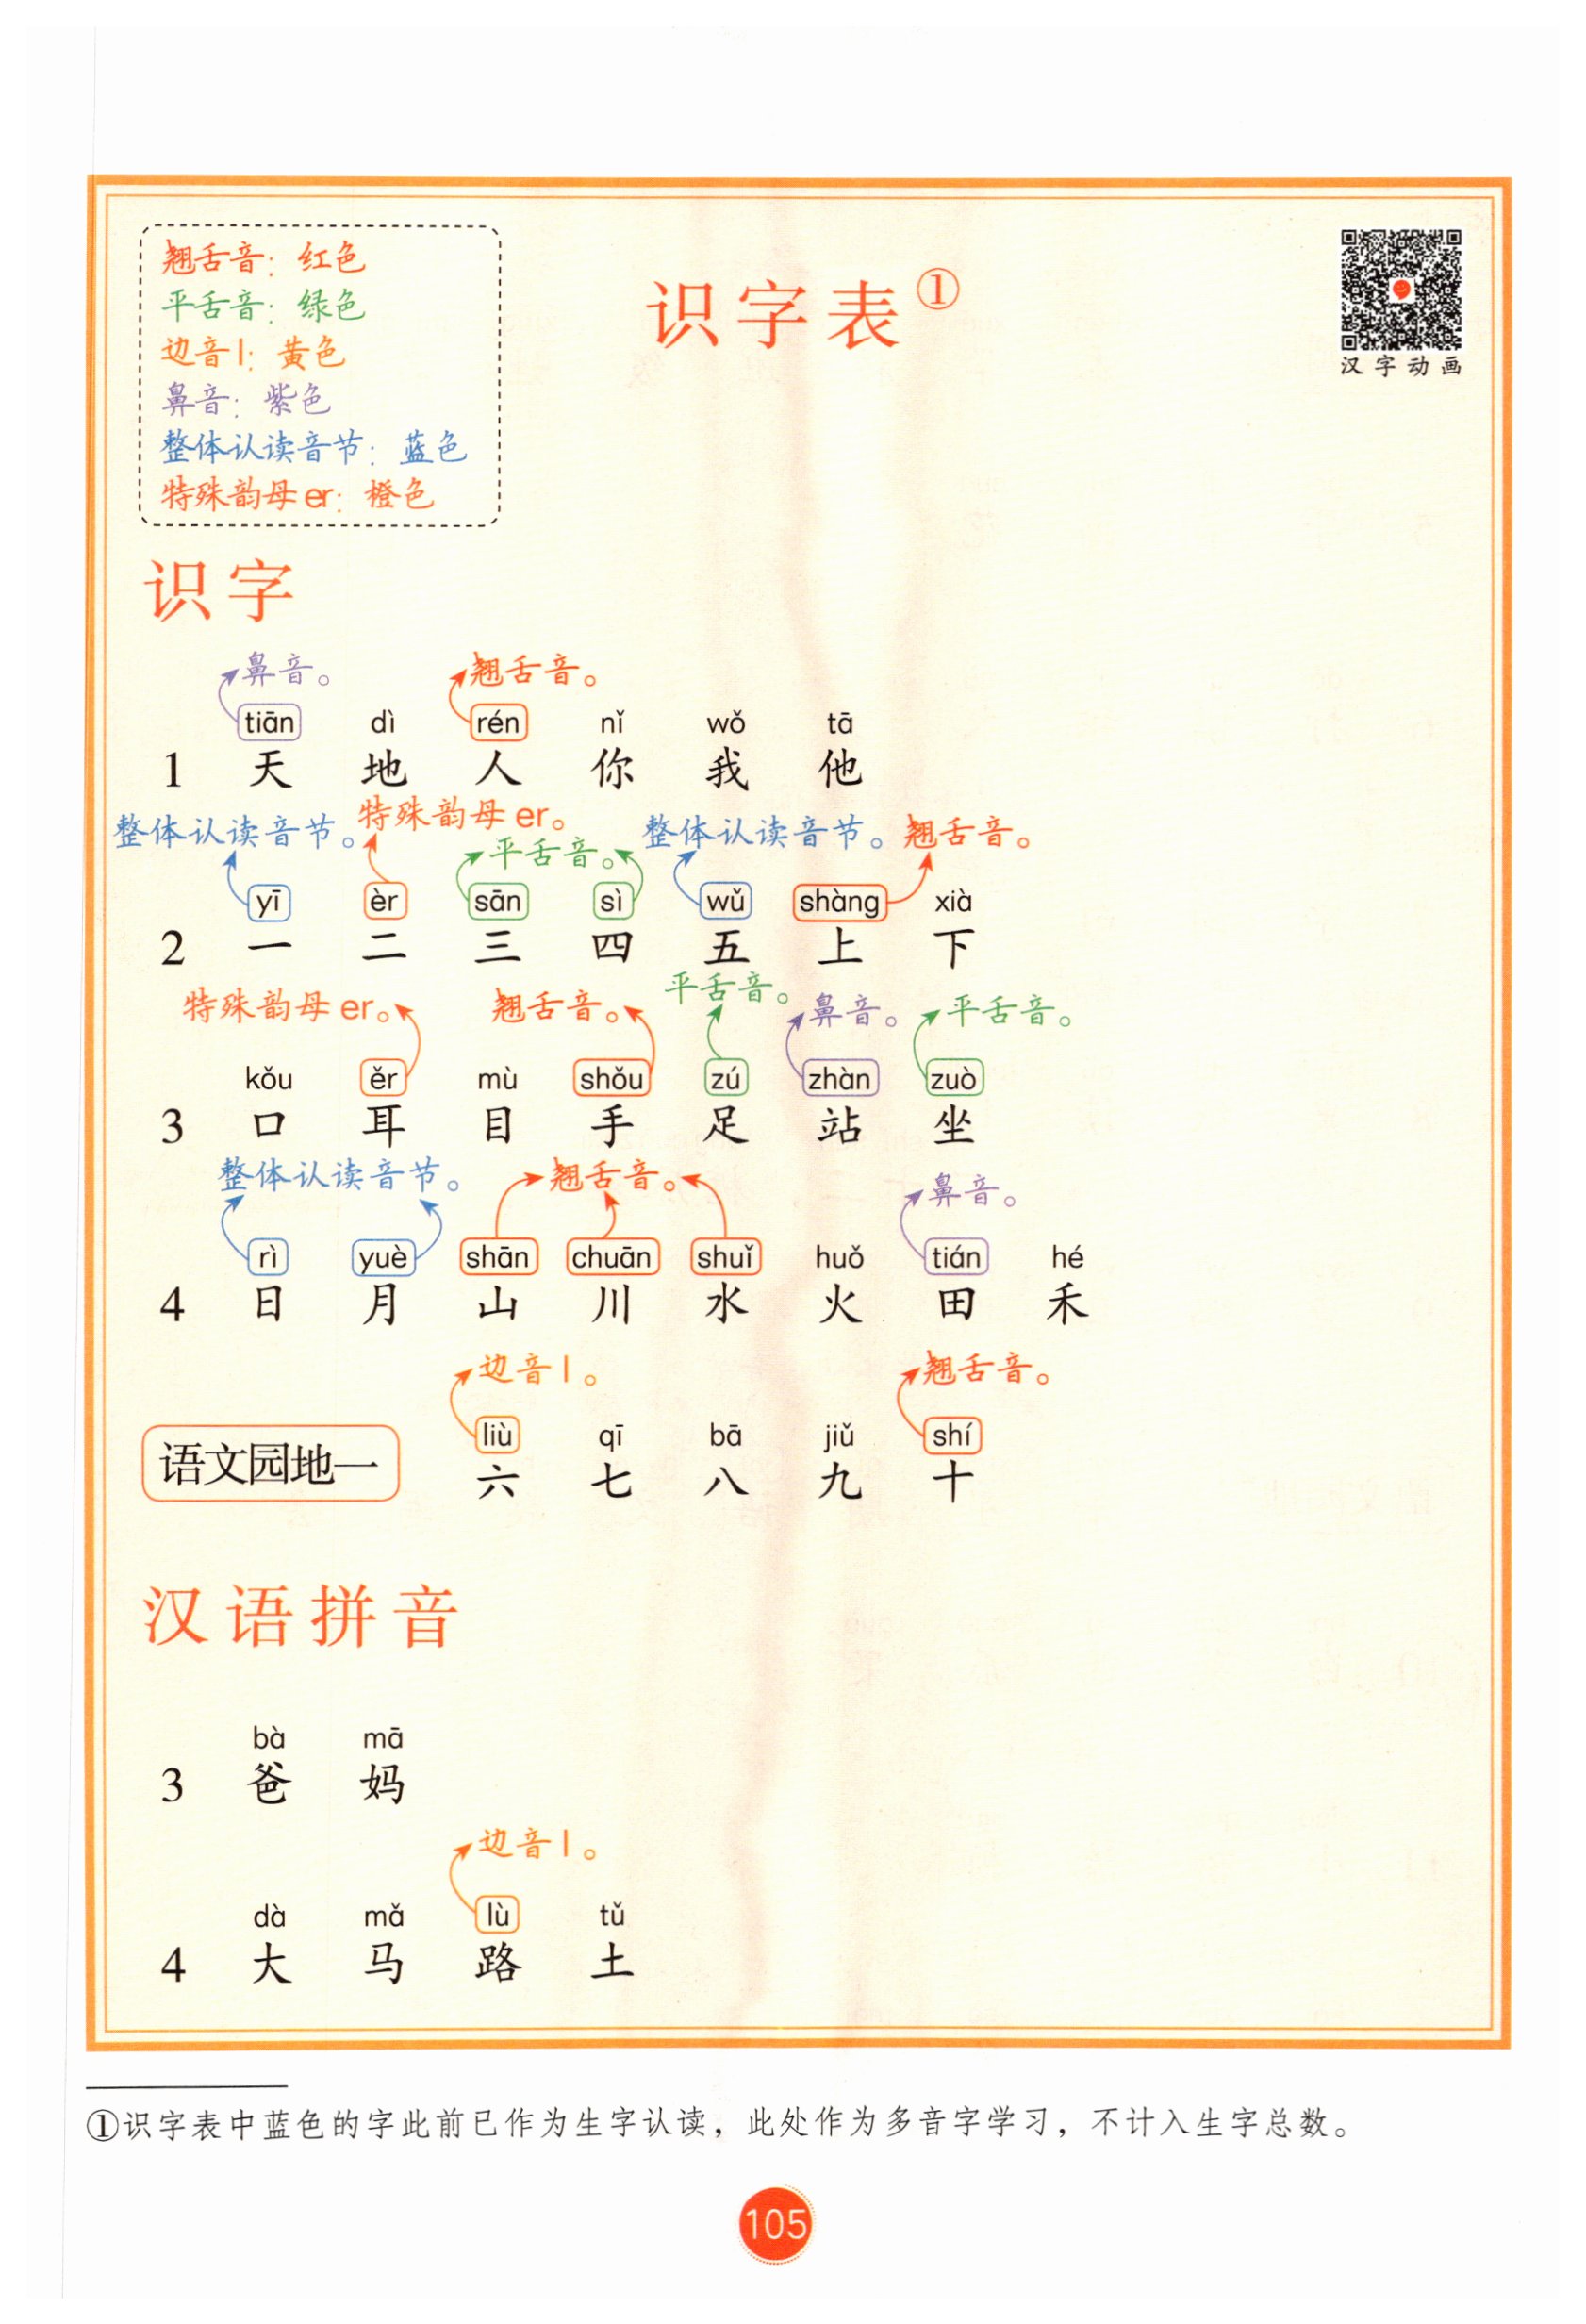 翘舌音：红色
平舌音：绿色
边音l：黄色
鼻音：紫色
整体认读音节：蓝色
特殊韵母er：橙色
识字表①
汉字动画
识字
鼻音。 翘舌音。
tiān dì rén nǐ wǒ tā
1 天 地 人 你 我 他
整体认读音节。 特殊韵母er。 平舌音。 整体认读音节。 翘舌音。
yī èr sān sì wǔ shàng xià
2 一 二 三 四 五 上 下
特殊韵母er。 翘舌音。 平舌音。 鼻音。 平舌音。
kǒu ěr mù shǒu zú zhàn zuò
3 口 耳 目 手 足 站 坐
整体认读音节。 翘舌音。 鼻音。
rì yuè shān chuān shuǐ huǒ tián hé
4 日 月 山 川 水 火 田 禾
边音l。 翘舌音。
liù qī bā jiǔ shí
语文园地一 六 七 八 九 十
汉语拼音
bà mā
3 爸 妈
边音l。
dà mǎ lù tǔ
4 大 马 路 土
①识字表中蓝色的字此前已作为生字认读，此处作为多音字学习，不计入生字总数。
105